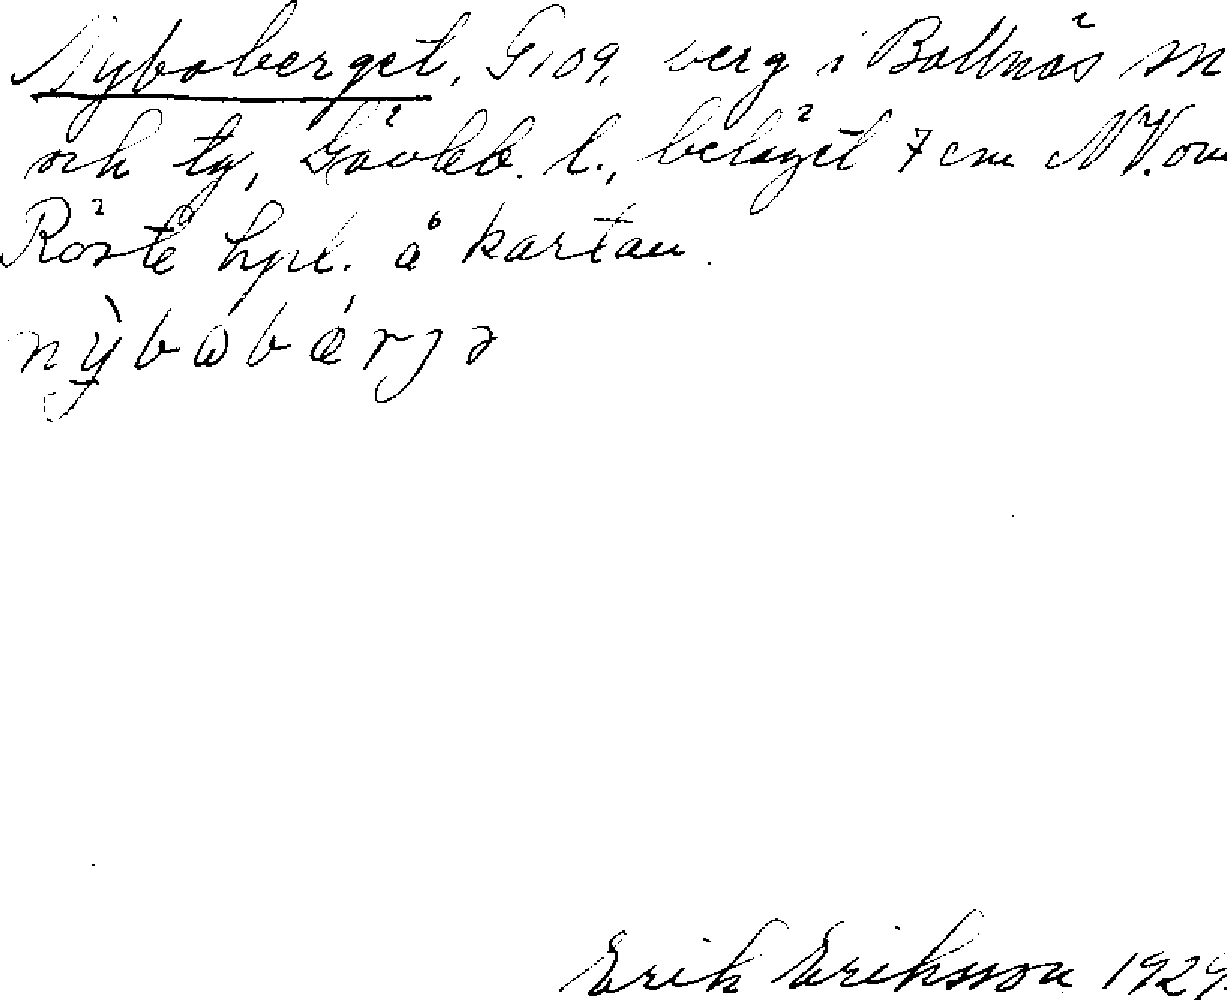 Nyboberget, G109, berg i Bollnäs sn
och tg, Gävleb. l., beläget 7 cm NV. om
Röste hpl. å kartan.
nỳbωbǽrȷə
Erik Eriksson 1929.